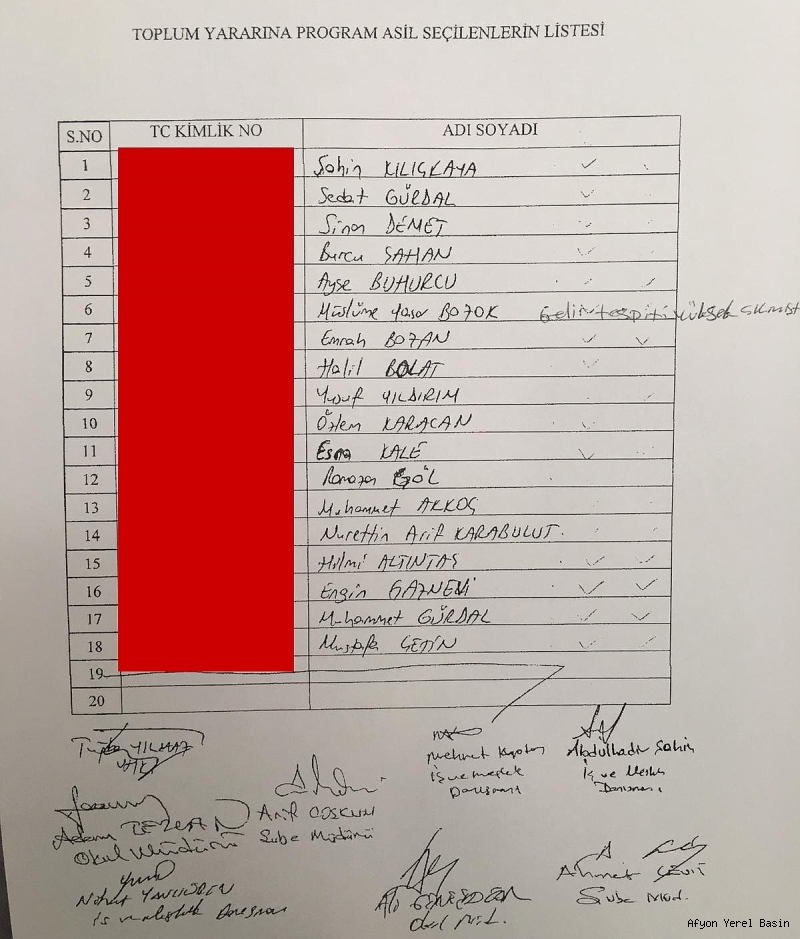 TOPLUM YARARINA PROGRAM ASİL SEÇİLENLERİN LİSTESİ
S.NO TC KİMLİK NO ADI SOYADI
1 Şahin KILIÇKAYA
2 Sedat GÜRDAL
3 Sinan DEMET
4 Burcu ŞAHAN
5 Ayşe BUHURCU
6 Müslüme Yaşar BOZOK Gelir tespiti yüksek çıkmıştı
7 Emrah BOZAN
8 Halil BOLAT
9 Yusuf YILDIRIM
10 Özlem KARACAN
11 Esma KALE
12 Ramazan GÖL
13 Muhammet AKKOÇ
14 Nurettin Arif KARABULUT
15 Hilmi ALTINTAŞ
16 Engin GAZNEVİ
17 Muhammet GÜRDAL
18 Mustafa ÇETİN
19
20
YILMAZ
Mehmet
İş ve meslek
Danışmanı
Abdulkadir Şahin
İş ve Meslek
Danışmanı
Arif COŞKUN
Şube Müdürü
Adem
Okul Müdürü
İş ve meslek Danışmanı
Ali
Ahmet
Şube Müd.
Afyon Yerel Basin